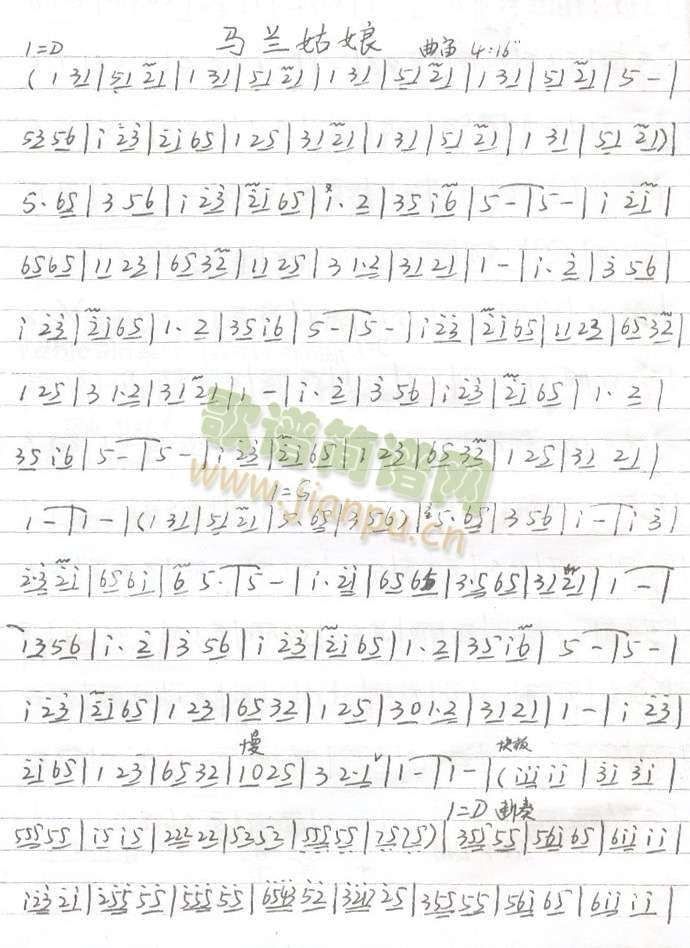 马兰姑娘 曲笛 4:16"
1=D
(1 31|51 21|1 31|51 21|1 31|51 21|1 31|51 21|5 -|
5356|i 23|2i 65|125|3121|131|5121|1 31|51 21)|
5·65|3 56|i 23|2i65|i·2|35i6|5-|5-|i 2i|
6565|1123|6532|1125|31·2|3121|1-|i·2|3 56|
i 23|2i65|1·2|35i6|5-|5-|i23|2i65|1123|6532|
125|31·2|3121|1-|i·2|3 56|i23|2i65|1·2|
35i6|5-|5-|i23|2i65|123|6532|125|31 21|
1=G
1-|1-|(131|5121|5·65|356)|5·65|356|i-|i3|
2·32i|656i|65·|5-|i·2i|6565|3·565|3121|1-|
1356|i·2|3 56|i 23|2i65|1·2|35i6|5-|5-|
i 23|2i65|1 23|6532|125|301·2|3121|1-|i 23|
慢 快板
2i65|123|6532|1025|32·1|1-|1-|(iiiii|3i3i|
1=D 断奏
55555|i5i5|22222|5252|55555|7575)|35i55|56i65|6iiii|
i232i|25555|55555|654352|321725|35555|56i65|6iiii|